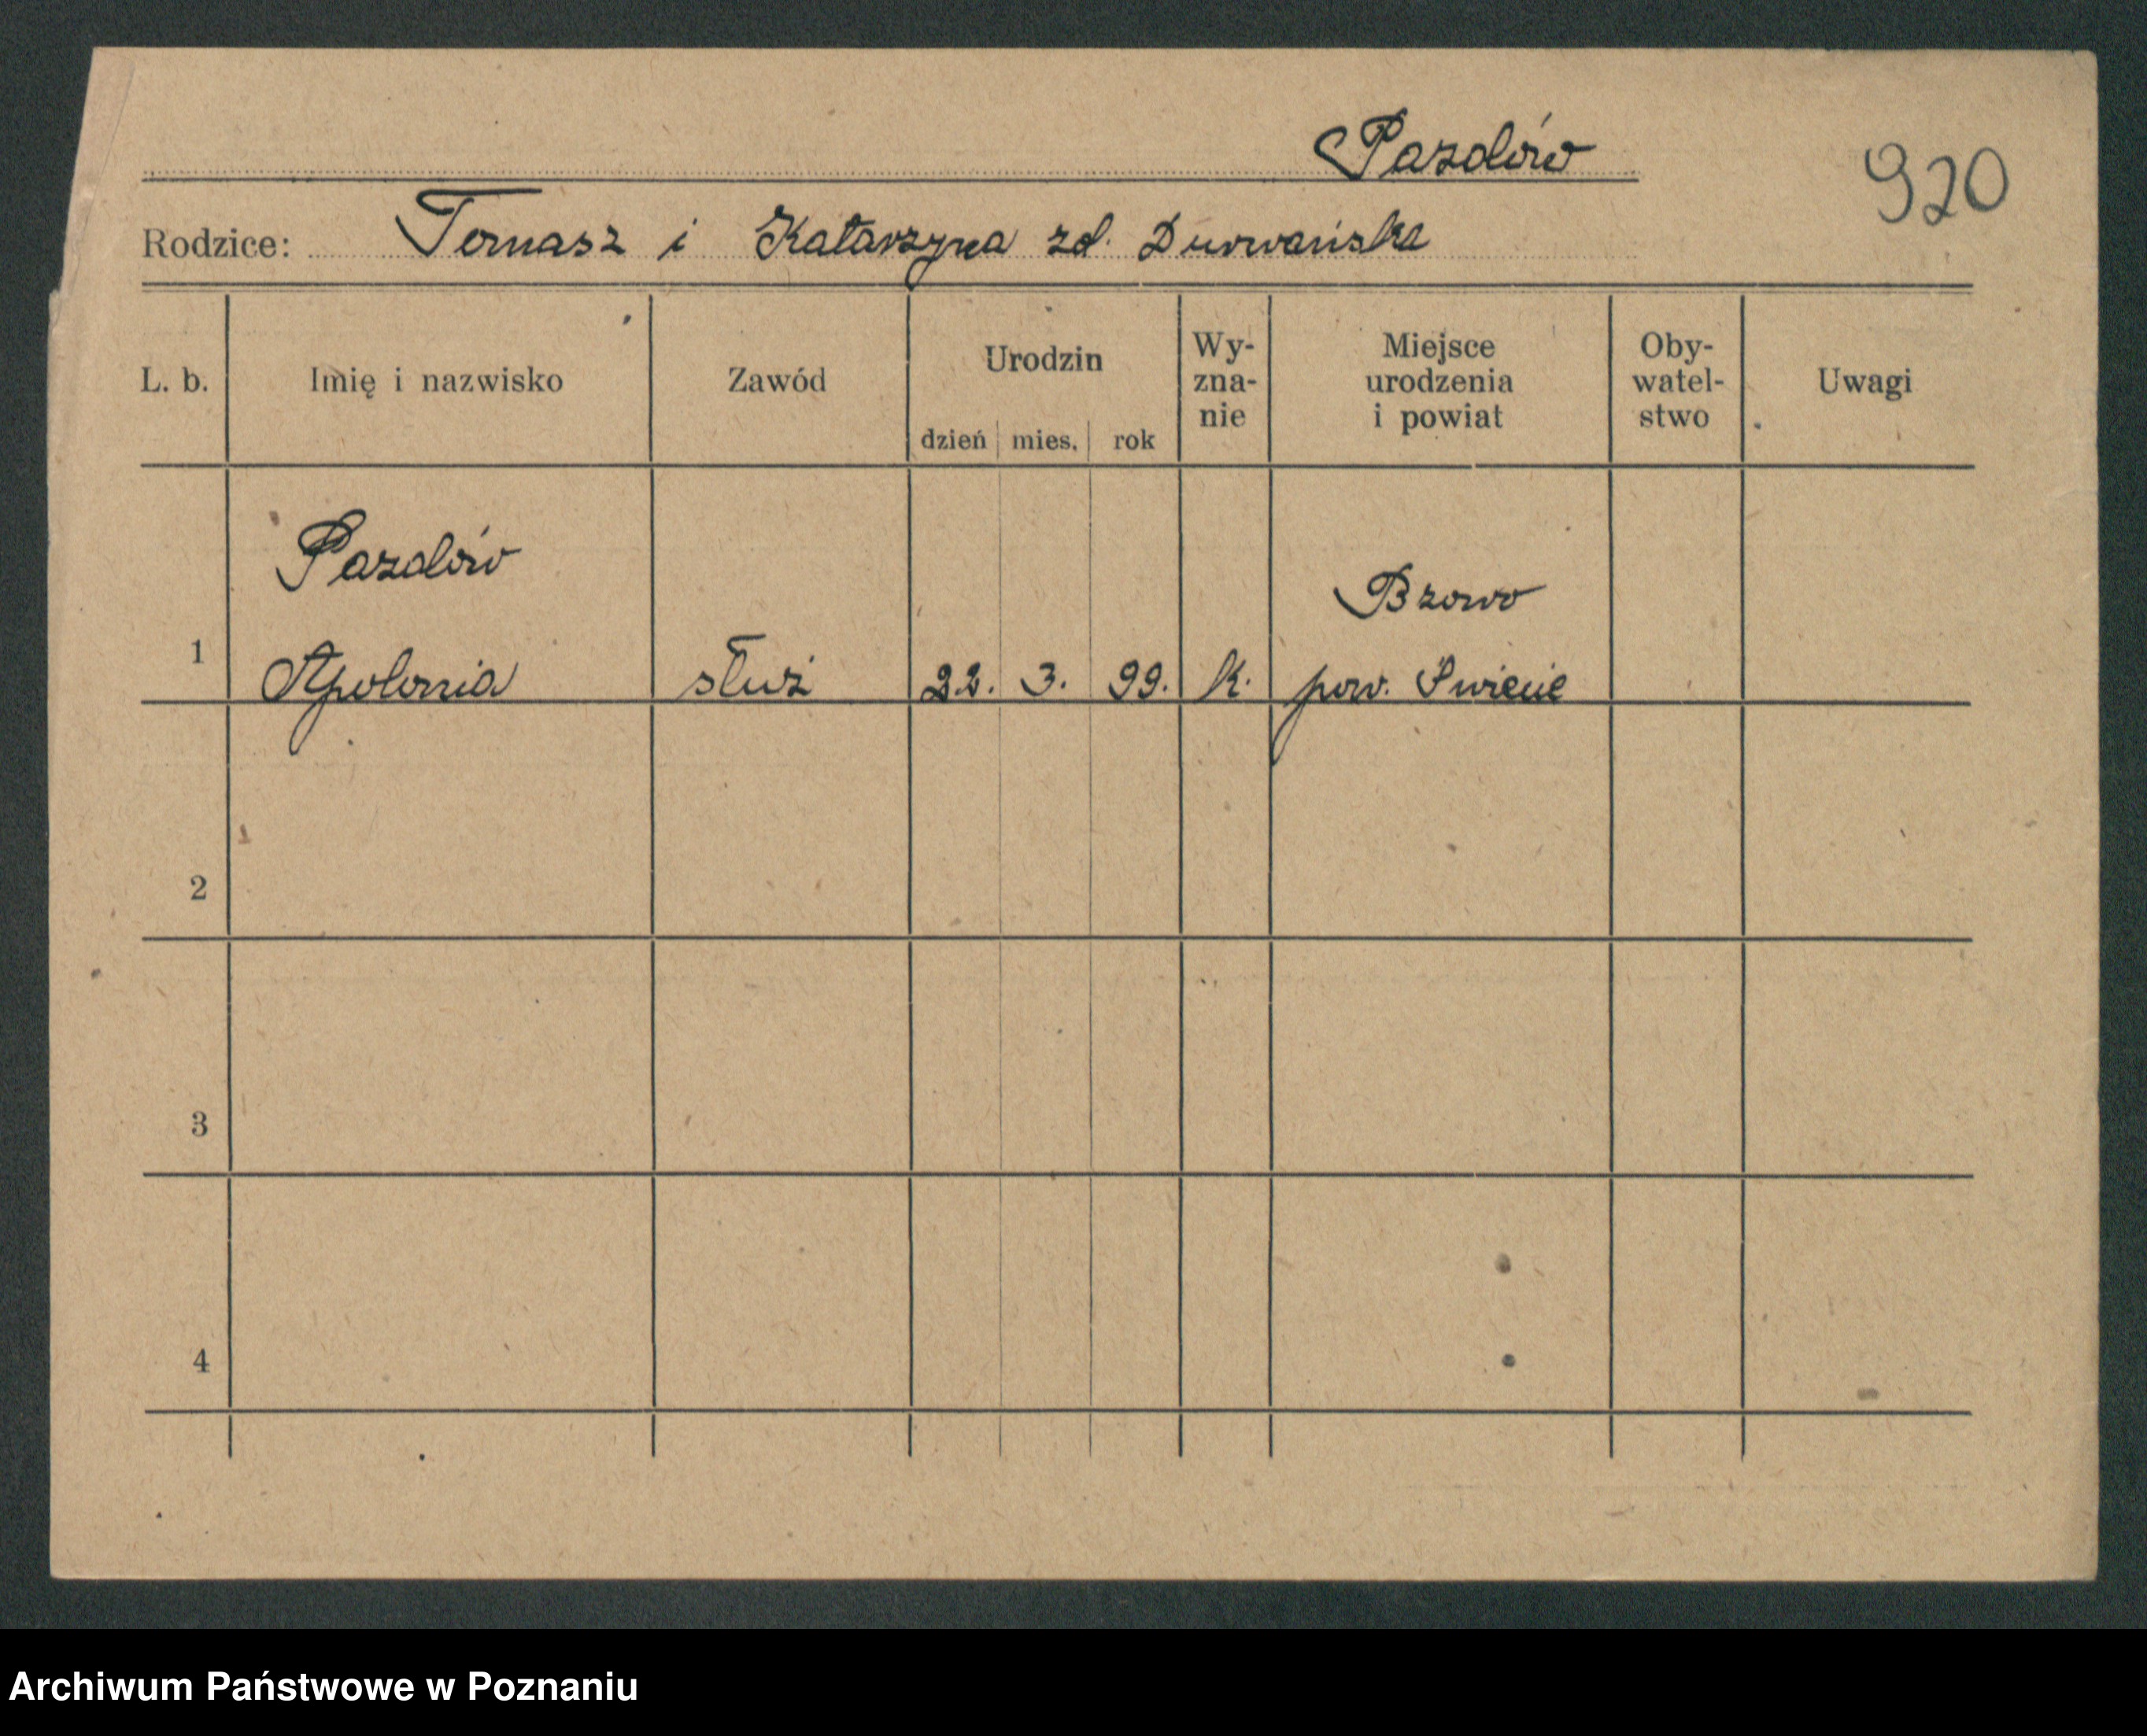 Pazdów
920
Rodzice: Tomasz i Katarzyna zd.
L. b.
Imię i nazwisko
Zawód
Urodzin
dzień mies. rok
Wy-
zna-
nie
Miejsce
urodzenia
i powiat
Oby-
watel-
stwo
Uwagi
1
Pazdów
Apolonia
służ
22. 3. 99.
K.
Bzowo
pow. Swiecie
2
3
4
Archiwum Państwowe w Poznaniu